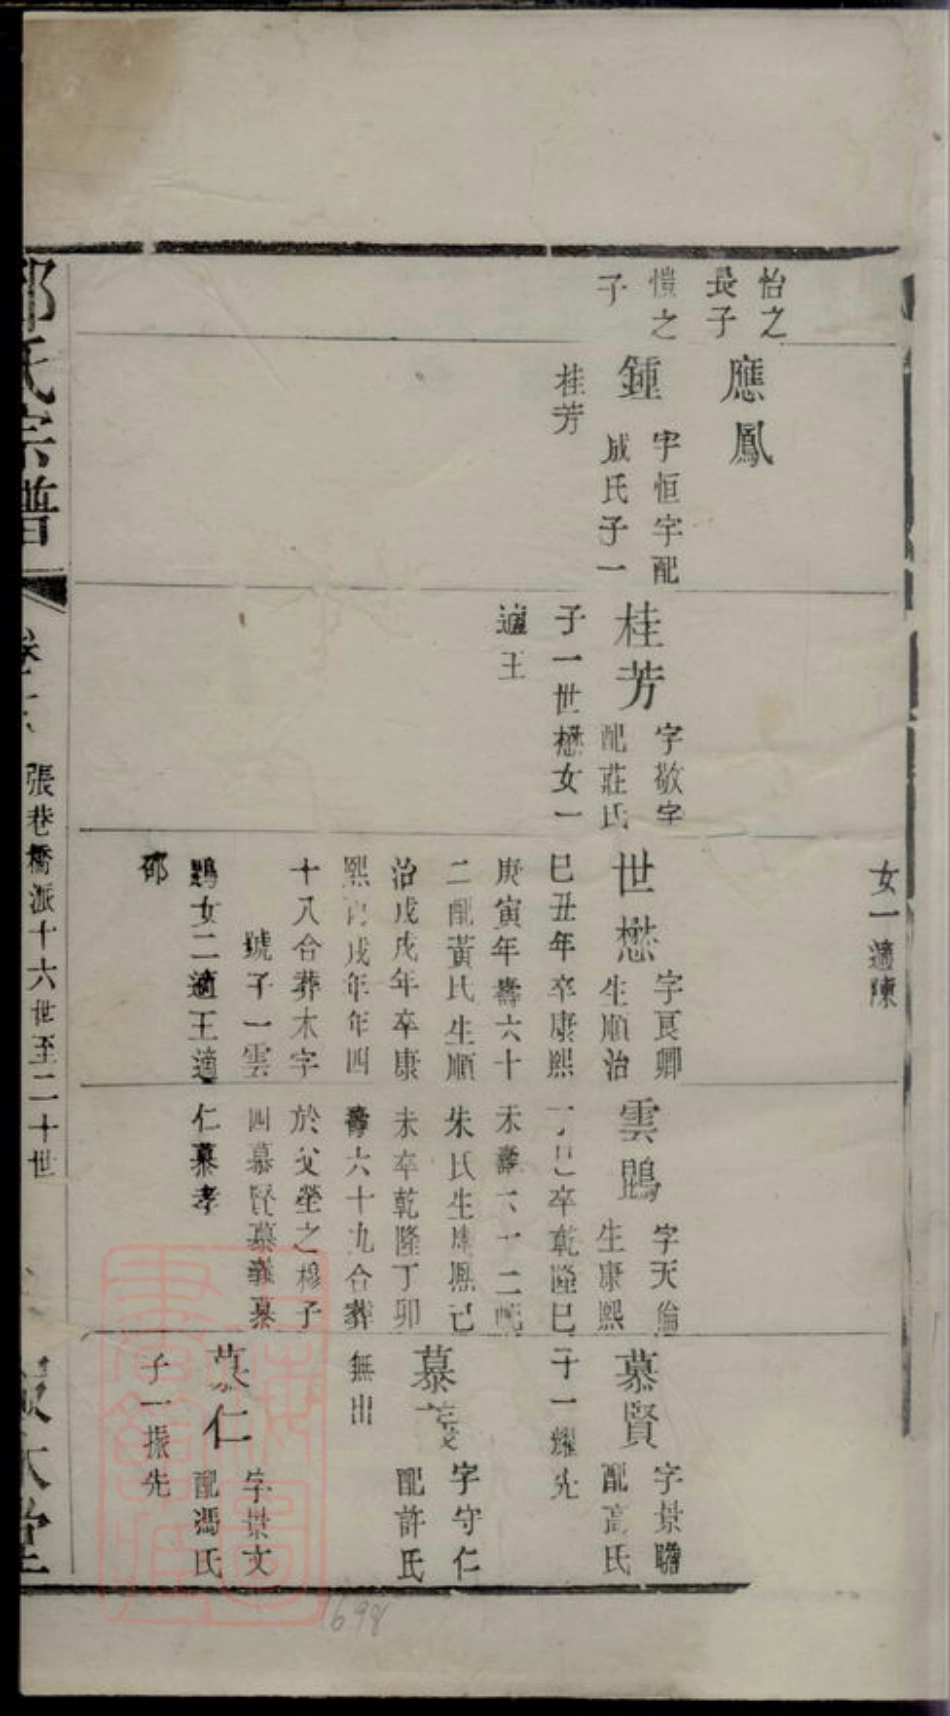 怡之
長子
愷之
子
應鳳
鍾
字恒字配
戚氏子一
桂芳
桂芳
字敬字
配莊氏
子一世懋女一
適王
女一適陳
世懋
字良卿
生順治
巳丑年卒康熙
庚寅年壽六十
二配黃氏生順
治戊戌年卒康
熙 戌年年四
十八合葬木字
號子一雲
鵾女二適王適
邵
雲鵾
字天倫
生康熙
丁巳卒乾隆巳
未壽六十二配
朱氏生康熙己
未卒乾隆丁卯
壽六十九合葬
於父塋之穆子
四慕賢慕義慕
仁慕孝
慕賢
字景瞻
配高氏
子一耀先
慕義
字守仁
配許氏
無出
慕仁
字景文
配馮氏
子一振先
氏宗譜
張巷橋派十六世至二十世
1698